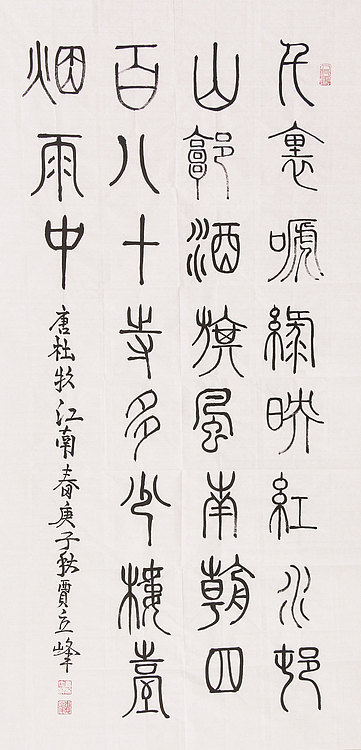 千裏嗁綠映紅水邨
山郭酒旗風南朝四
百八十寺多少樓臺
烟雨中
唐杜牧江南春庚子秋賈立峰